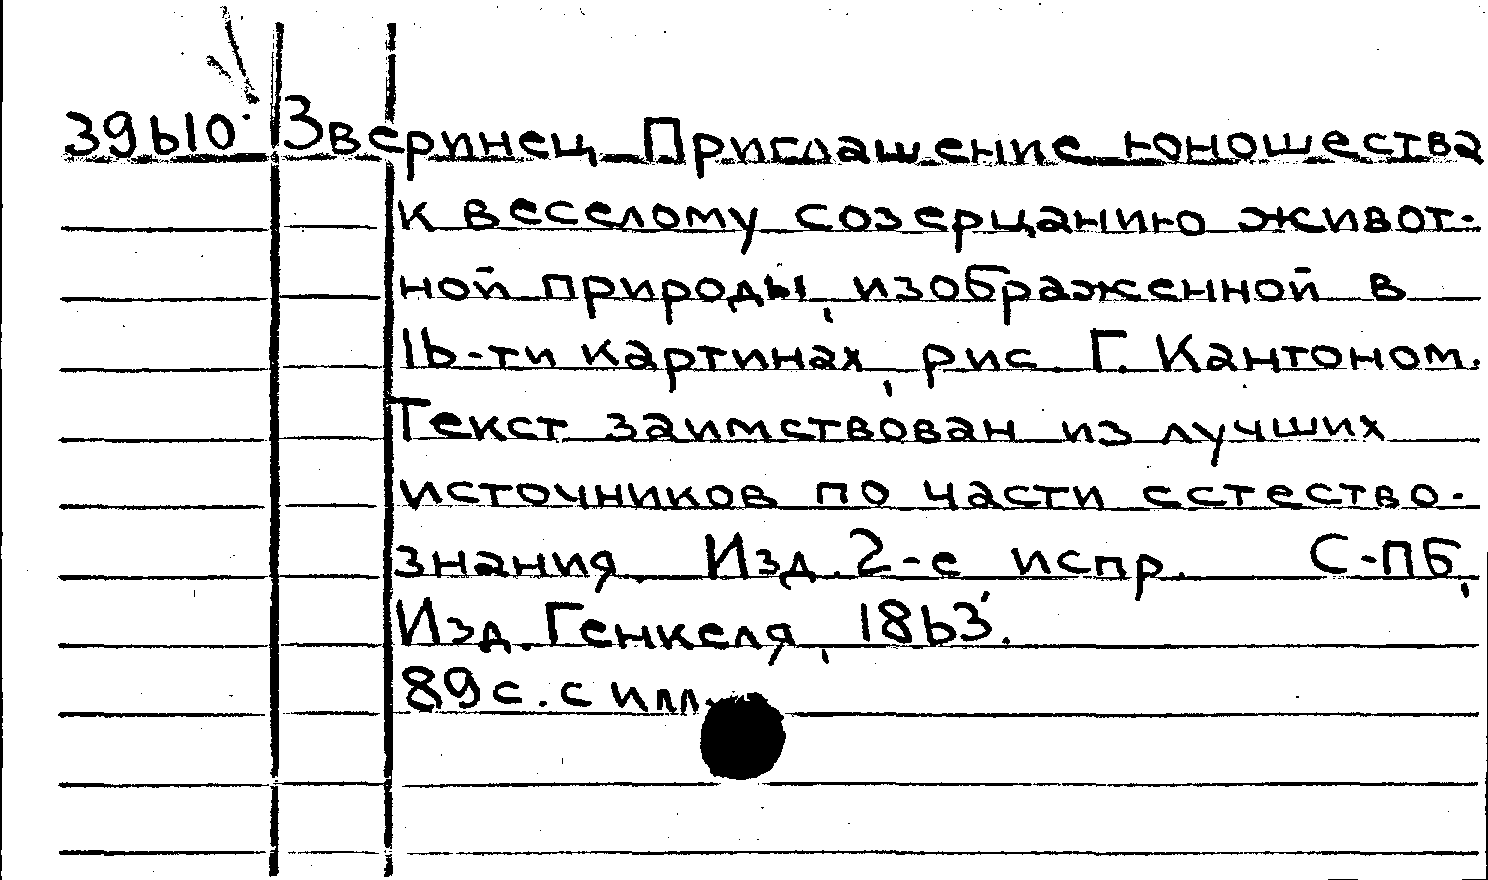 39610 Зверинец. Приглашение юношества
к веселому созерцанию живот-
ной природы, изображенной в
16-ти картинах, рис. Г. Кантоном.
Текст заимствован из лучших
источников по части естество-
знания. Изд. 2-е испр. С-ПБ,
Изд. Генкеля, 1863.
89 с. с илл.